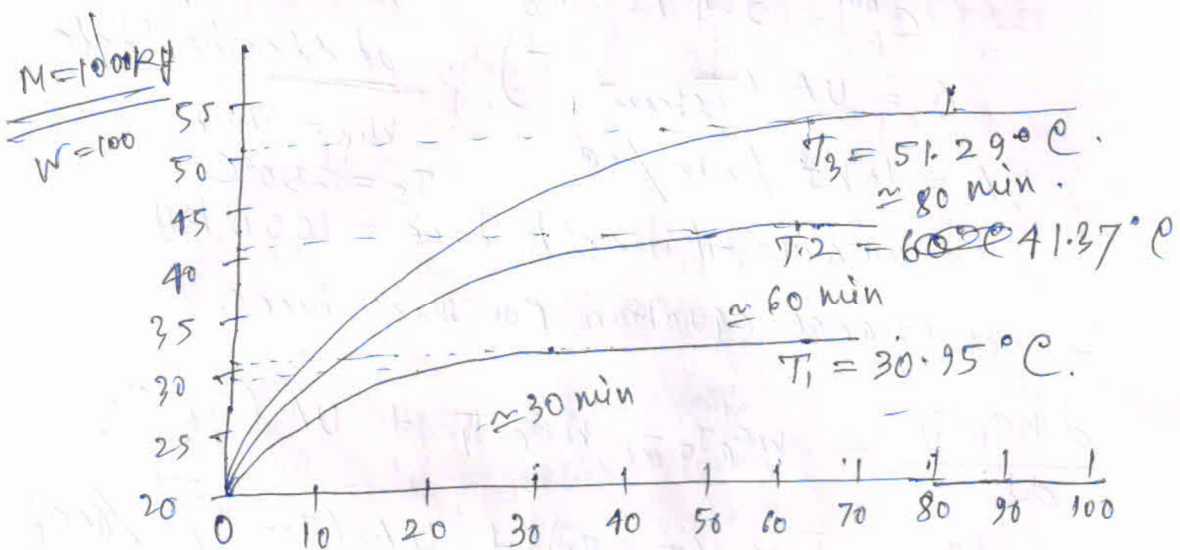 M=1000Kg
W=100
55
50
45
40
35
30
25
20
T3 = 51.29°C.
≃ 80 min.
T.2 = 41.37°C
≃ 60 min
T1 = 30.95°C.
≃ 30 min
0 10 20 30 40 50 60 70 80 90 100